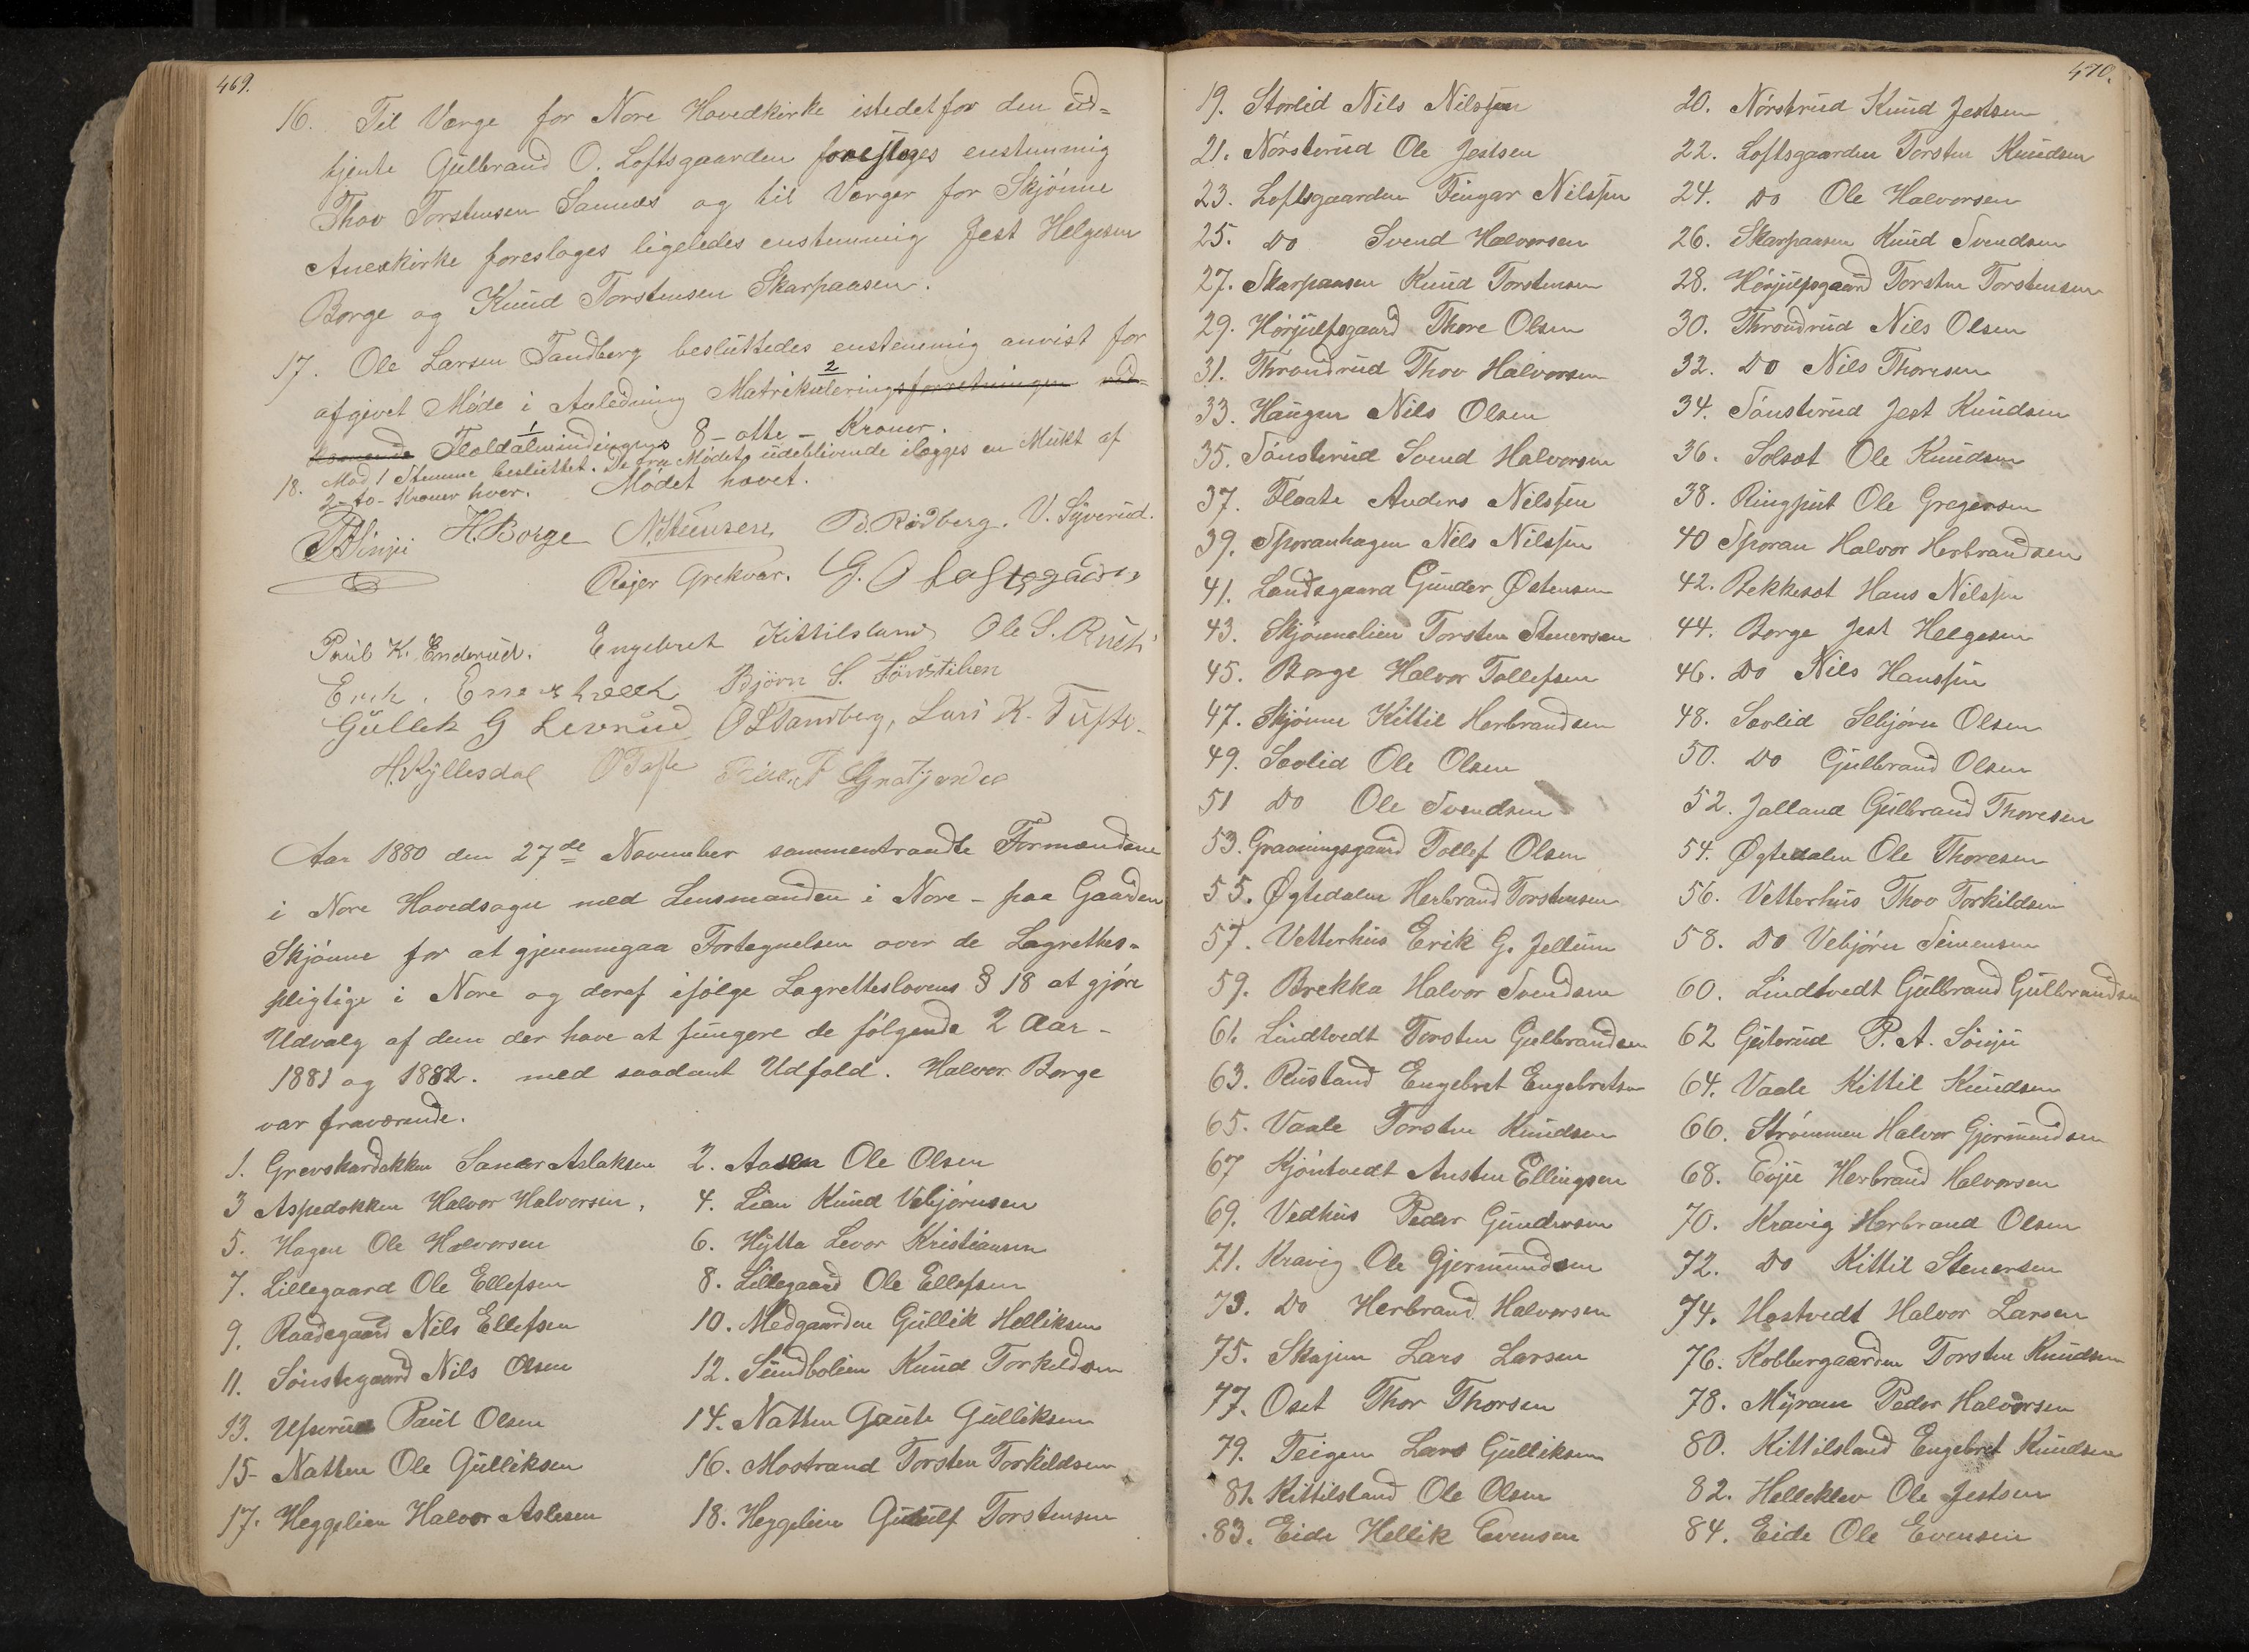 469.
16. Til Værge for Nore Hovedkirke istedetfor den ud=
tjente Gulbrand O. Loftsgaarden foresloges enstemmig
Thov Torstensen Sannes og til Værger for Skjönne
Anexkirke foresloges ligeledes enstemmig Jest Helgesen
Borge og Knud Torstensen Skarpaasen.
17. Ole Larsen Tandberg besluttedes enstemmig anvist for
afgivet Møde i Anledning Matrikuleringsforretningen ved-
Floldalmindingens 8 - otte - Kroner.
18. Mod 1 Stemme besluttet. De fra Mødet udeblivende ilægges en Mulkt af
2 - to - Kroner hver. Mødet hævet.
H. Borge N. Steensen P. Rødberg. V. Syverud.
G. O Loftsgaarden
Paul K. Enderud. Engebret Kittilsland Ole S. Rust
Erik Björn S.
Gullek G Levrud O L Tandberg, Lars K. Tufte.
H. Kyllesdal O Tafte
Aar 1880 den 27de November sammentraadte Formændene
i Nore Hovedsogn med Lensmanden i Nore - paa Gaarden
Skjönne for at gjennemgaa Fortegnelsen over de Lagrettes-
pligtige i Nore og deraf ifölge Lagretteslovens § 18 at gjöre
Udvalg af dem der have at fungere de fölgende 2 Aar -
1881 og 1882. med saadant Udfald. Halvor Borge
var fraværende.
1. Grevskardokken Sander Aslaksen 2. Aasen Ole Olsen
3 Aspedokken Halvor Halvorsen. 4. Lien Knud Vebjörnsen
5. Hagen Ole Halvorsen 6. Hytta Levor Kristiansen
7. Lillegaard Ole Ellefsen 8. Lillegaard Ole Ellefsen
9. Raadegaard Nils Ellefsen 10. Medgaarden Gullik Helliksen
11. Sönstegaard Nils Olsen 12. Sundbölien Knud Torkildsen
13. Uperud Paul Olsen 14. Natten Gaute Gulliksen
15- Natten Ole Gulliksen 16. Mostrand Torsten Torkildsen
17. Heggelien Halvor Aslesen 18. Heggelien Gunulf Torstensen
470.
19. Storlid Nils Nilssen 20. Nörsterud Knud Jestsen
21. Nörsterud Ole Jestsen 22. Loftsgaarden Torsten Knudsen
23. Loftsgaarden Fingar Nilssen 24. Do Ole Halvorsen
25. Do Svend Halvorsen 26. Skarpaasen Knud Svendsen
27. Skarpaasen Knud Torstensen 28. Hörjulfsgaard Torsten Torstensen
29. Hörjulfsgaard Thore Olsen 30. Throndrud Nils Olsen
31. Throndrud Thov Halvorsen 32. Do Nils Thoresen
33. Haugen Nils Olsen 34. Sönsterud Jest Knudsen
35. Sönsterud Svend Halvorsen 36. Solsæt Ole Knudsen
37. Flaate Anders Nilssen 38. Ringput Ole Gregersen
39. Sporanhagen Nils Nilssen 40 Sporan Halvor Herbrandsen
41. Landsgaard Gunder Østensen 42. Bekkesæt Hans Nilssen
43. Skjönnelien Torsten Stenersen 44. Borge Jest Helgesen
45. Borge Halvor Tollefsen 46. Do Nils Hanssen
47. Skjönne Kittil Herbrandsen 48. Sævlid Sebjörn Olsen
49. Sævlid Ole Olsen 50. Do Gulbrand Olsen
51 Do Ole Svendsen 52. Jalland Gulbrand Thoresen
53. Graaningsgaard Tollef Olsen 54. Øgtedalen Ole Thoresen
55. Øgtedalen Herbrand Torstensen 56. Vetterhus Thov Torkildsen
57. Vetterhus Erik G. Jellum 58. Do Vebjörn Simensen
59. Brekka Halvor Svendsen 60. Lindtvedt Gulbrand Gulbrandsen
61. Lindtvedt Torsten Gulbrandsen 62 Guterud P. A. Sönju
63. Rusland Engebret Engebretsen 64. Vaale Kittil Knudsen
65. Vaale Torsten Knudsen 66. Strömmen Halvor Gjermundsen
67 Kjöntvedt Austen Ellingsen 68. Evju Herbrand Halvorsen
69. Vedhus Peder Gundersen 70. Kravig Herbrand Olsen
71. Kravig Ole Gjermundsen 72. Do Kittil Stenersen
73. Do Herbrand Halvorsen 74. Hostvedt Halvor Larsen
75. Skajem Lars Larsen 76. Kobbergaarden Torsten Knudsen
77. Oset Thor Thorsen 78. Myran Peder Halvorsen
79. Teigen Lars Gulliksen 80. Kittilsland Engebret Knudsen
81. Kittilsland Ole Olsen 82. Helleklev Ole Jestsen
83. Eide Hellik Evensen 84. Eide Ole Evensen